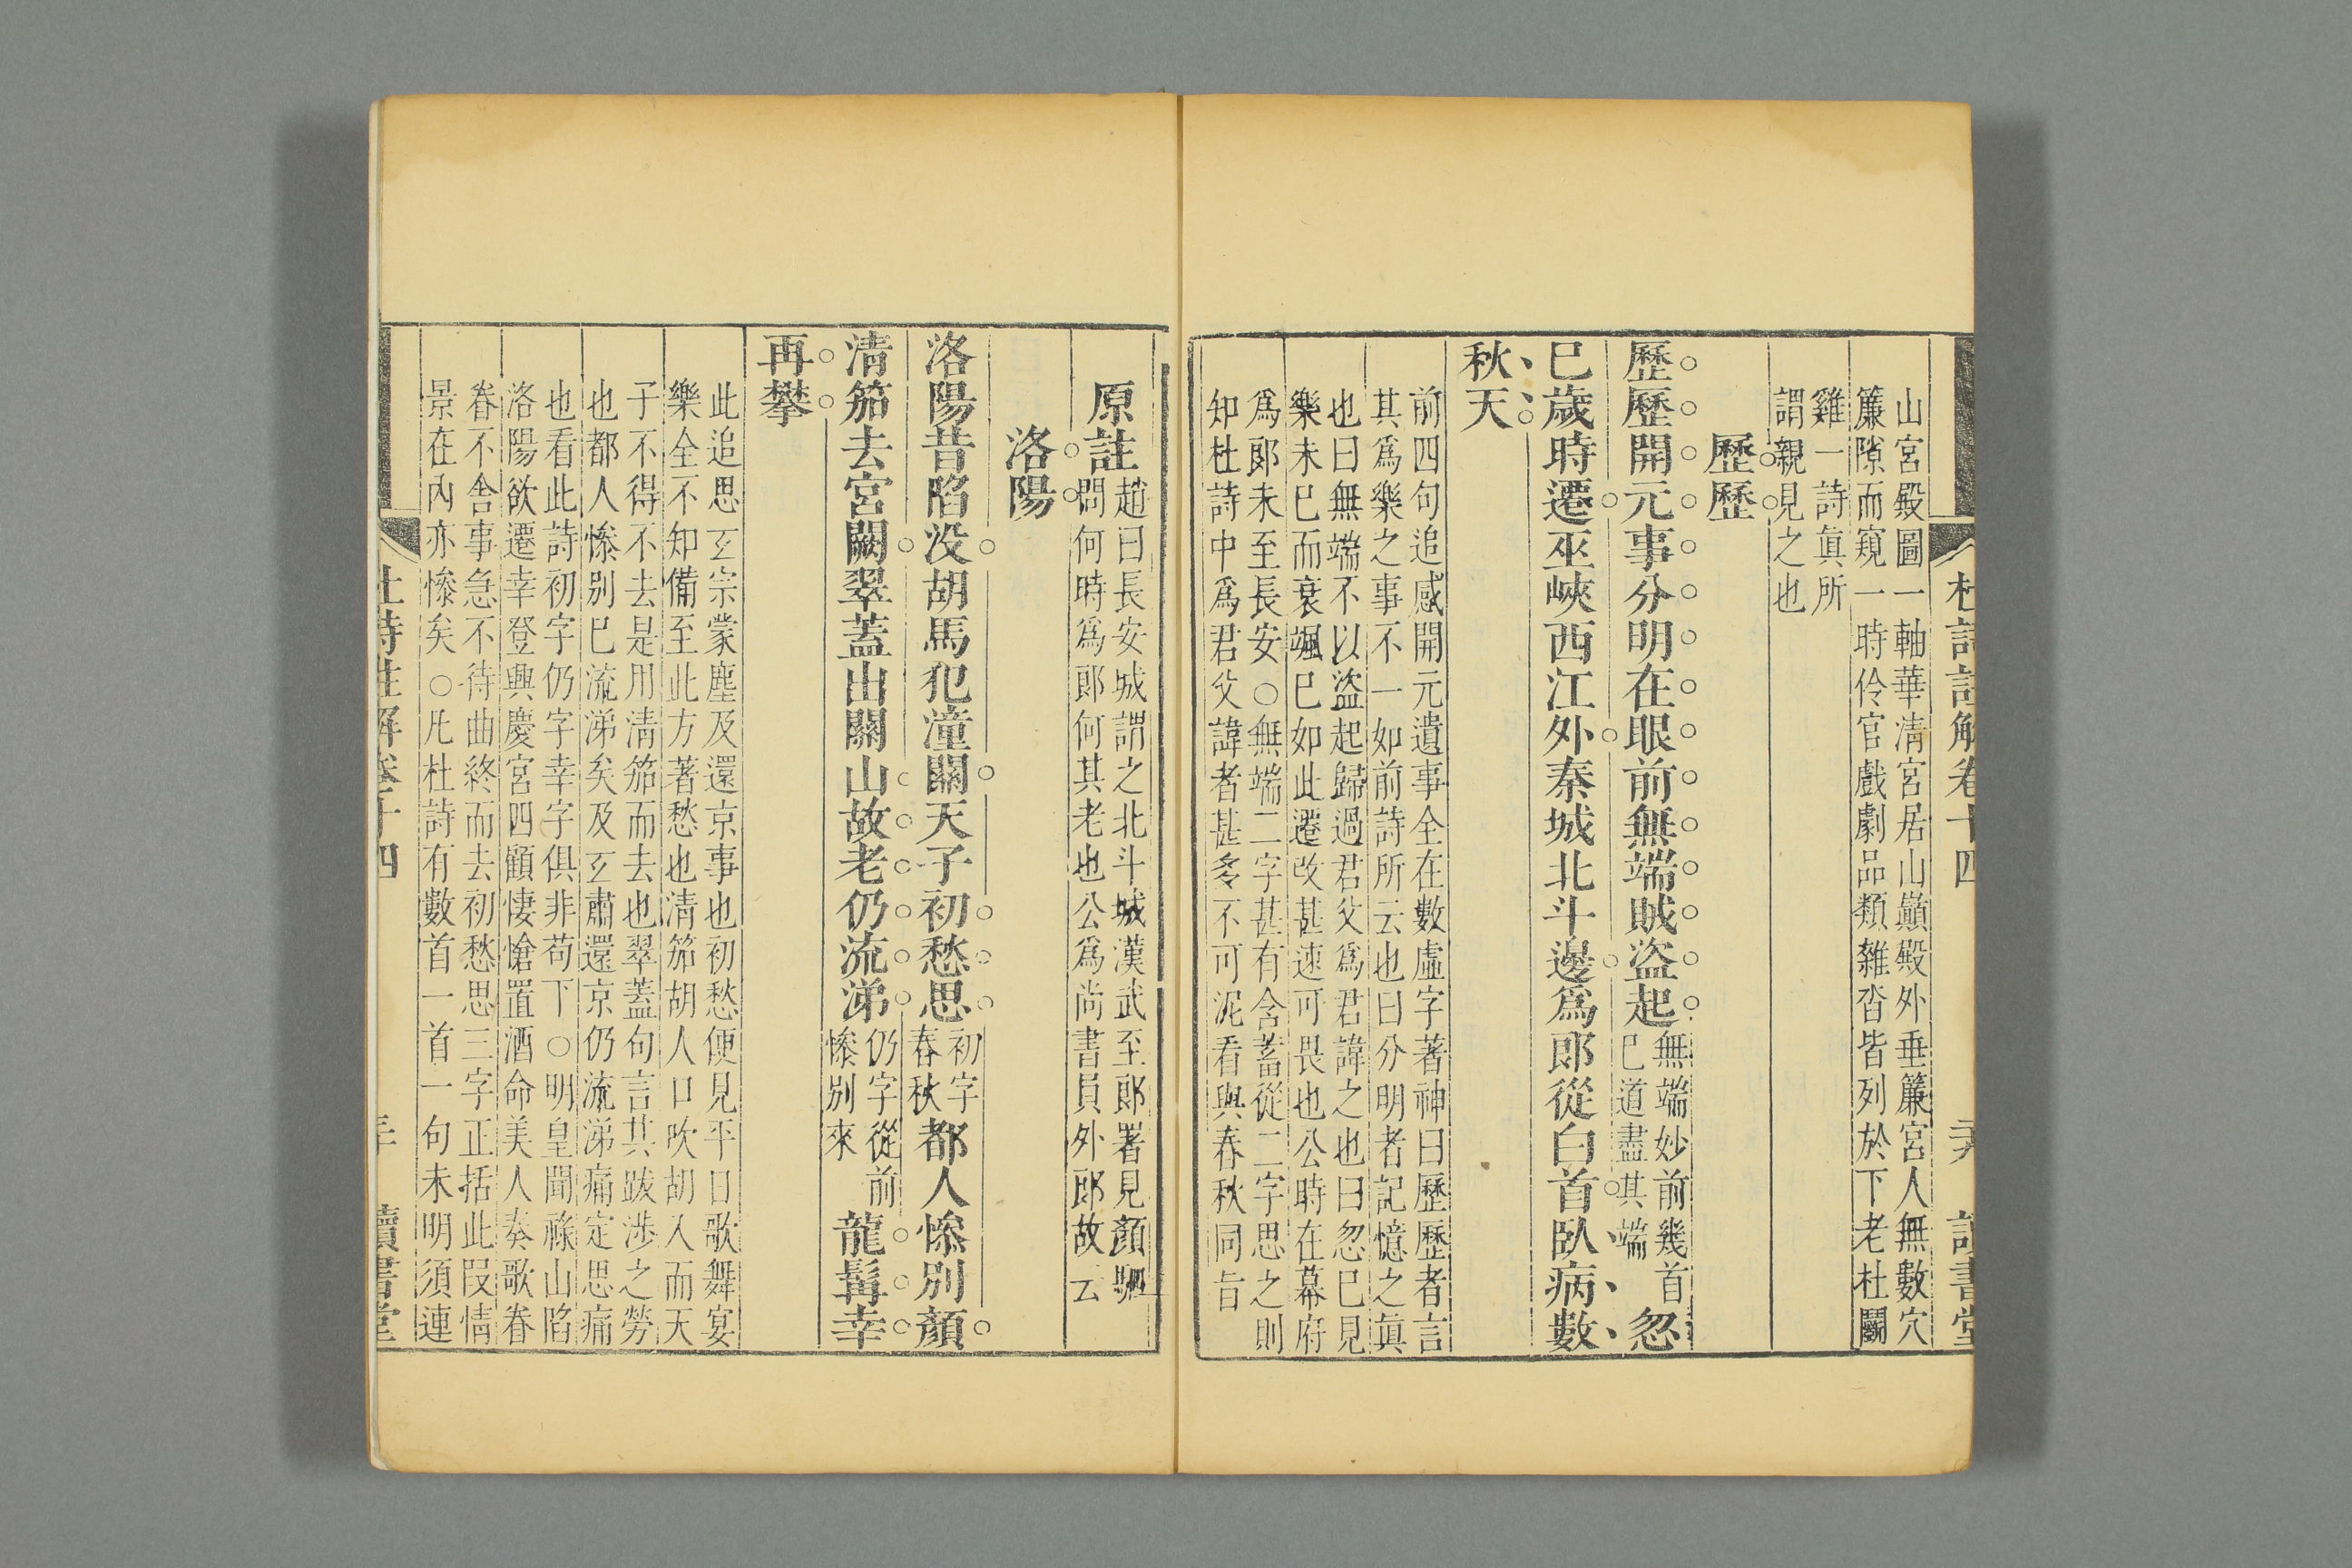 杜詩註解卷十四
讀書堂
山宮殿圖一軸華清宮居山巔殿外垂簾宮人無數穴
簾隙而窺一時伶官戲劇品類雜沓皆列於下老杜鬭
雞一詩眞所
謂親見之也
歷歷
歷歷開元事分明在眼前無端賊盜起無端妙前幾首巳道盡其端忽
巳歲時遷巫峽西江外秦城北斗邊爲郎從白首臥病數
秋天
前四句追感開元遺事全在數虛字著神曰歷歷者言
其爲樂之事不一如前詩所云也曰分明者記憶之眞
也曰無端不以盜起歸過君父爲君諱之也曰忽巳見
樂未巳而衰颯巳如此遷改甚速可畏也公時在幕府
爲郎未至長安○無端二字甚有含蓄從二字思之則
知杜詩中爲君父諱者甚多不可泥看與春秋同旨
原註趙曰長安城謂之北斗城漢武至郎署見顏駟
問何時爲郎何其老也公爲尚書員外郎故云
洛陽
洛陽昔陷没胡馬犯潼關天子初愁思初字春秋都人慘別顏
清笳去宮闕翠蓋出關山故老仍流涕仍字從前慘別來龍髯幸
再攀
此追思玄宗蒙塵及還京事也初愁便見平日歌舞宴
樂全不知備至此方著愁也清笳胡人口吹胡入而天
子不得不去是用清笳而去也翠蓋句言其跋涉之勞
也都人慘別巳流涕矣及玄肅還京仍流涕痛定思痛
也看此詩初字仍字幸字俱非苟下○明皇聞祿山陷
洛陽欲遷幸登興慶宮四顧悽愴置酒命美人奏歌眷
眷不舍事急不待曲終而去初愁思三字正括此叚情
景在內亦慘矣○凡杜詩有數首一首一句未明須連
杜詩註解卷十四
讀書堂